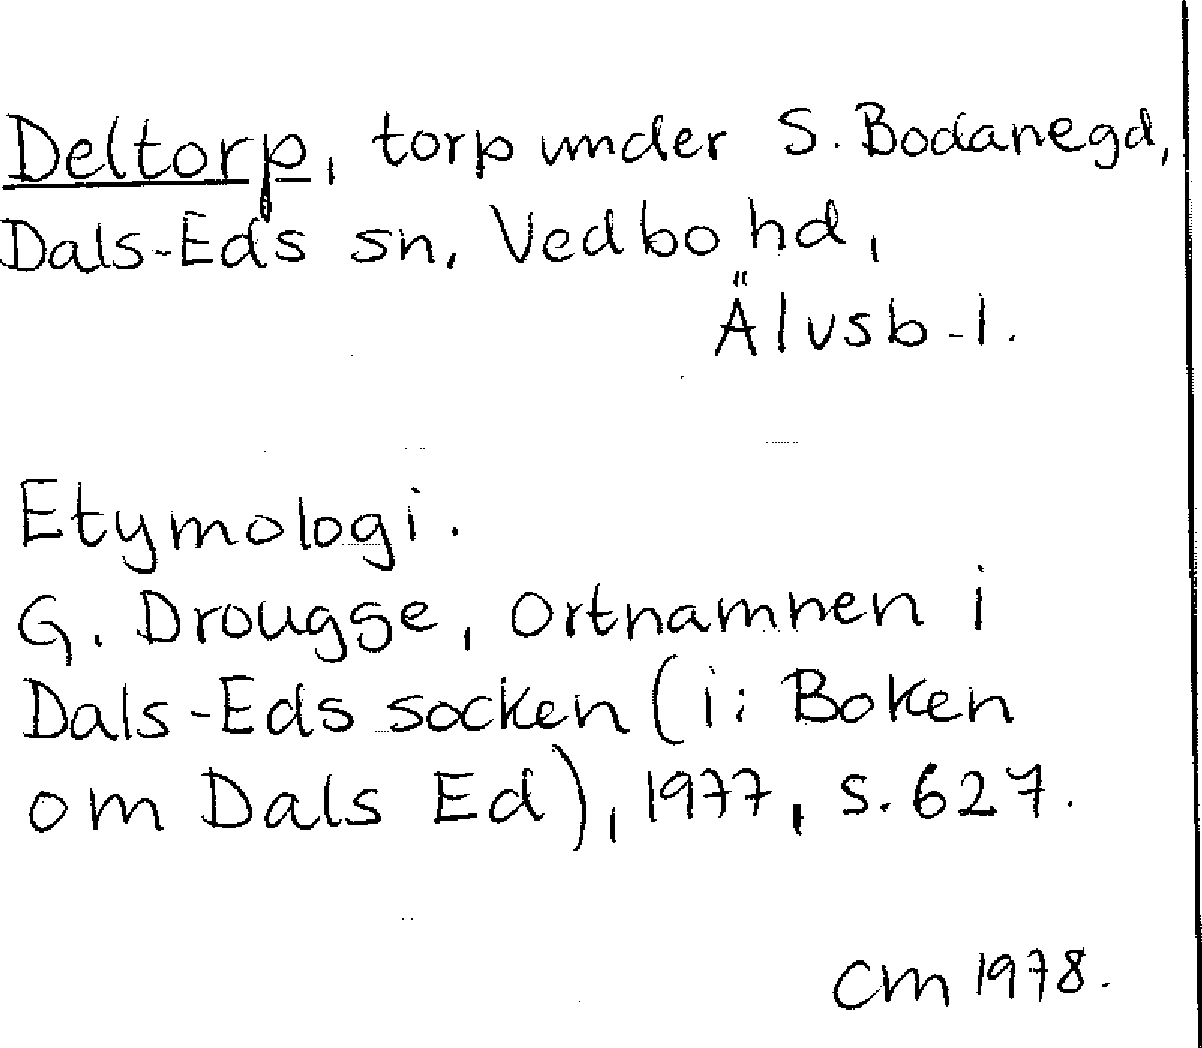 Deltorp, torp under S. Bodanegd,
Dals-Eds sn, Vedbo hd,
Älvsb-l.
Etymologi.
G. Drougge, Ortnamnen i
Dals-Eds socken (i: Boken
om Dals Ed), 1977, s. 627.
CM 1978.